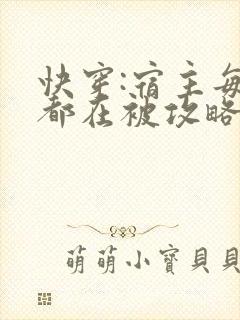 快穿:宿主每
都在被攻略
萌萌小寶貝貝